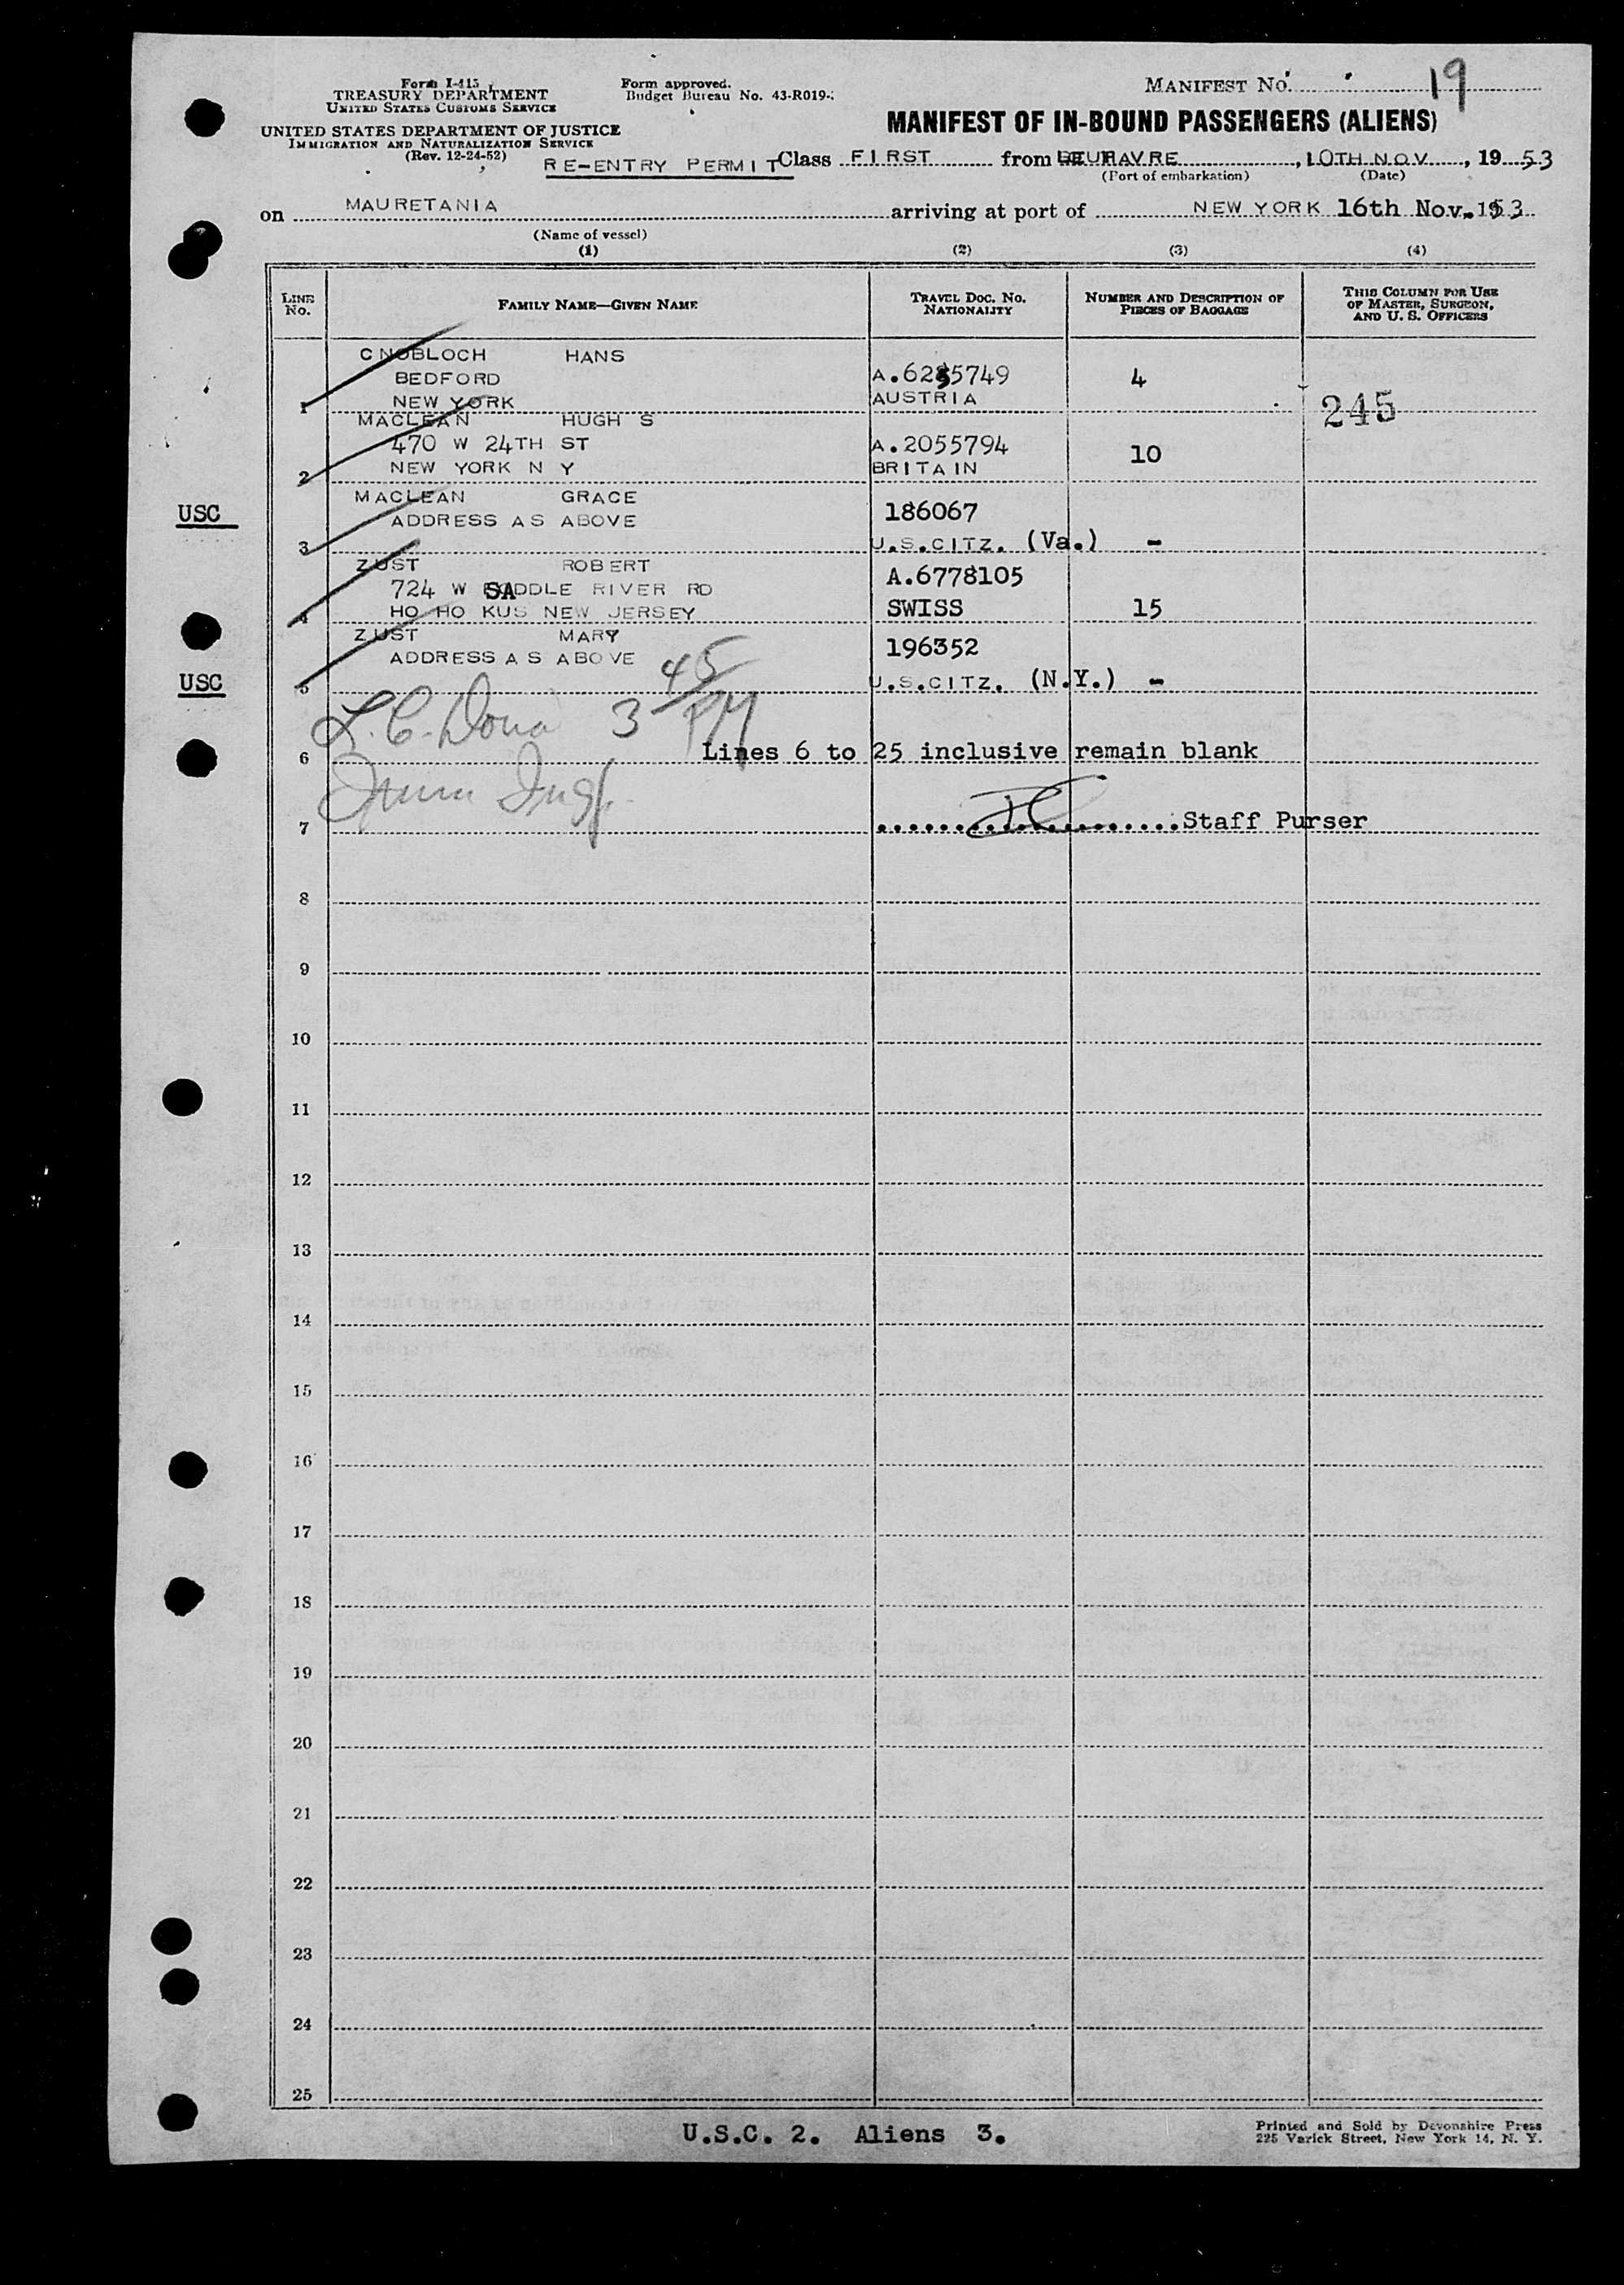 Form I-415
TREASURY DEPARTMENT
UNITED STATES CUSTOMS SERVICE
UNITED STATES DEPARTMENT OF JUSTICE
IMMIGRATION AND NATURALIZATION SERVICE
(Rev. 12-24-52)
Form approved.
Budget Bureau No. 43-R019-
MANIFEST NO. 19
MANIFEST OF IN-BOUND PASSENGERS (ALIENS)
RE-ENTRY PERMIT Class FIRST from HAVRE, 10TH NOV, 1953
(Port of embarkation) (Date)
on MAURETANIA arriving at port of NEW YORK 16th Nov. 1953
(Name of vessel)
(1) (2) (3) (4)
LINE No. FAMILY NAME—GIVEN NAME TRAVEL DOC. NO. NATIONALITY NUMBER AND DESCRIPTION OF PIECES OF BAGGAGE THIS COLUMN FOR USE OF MASTER, SURGEON, AND U. S. OFFICERS
CNOBLOCH HANS
BEDFORD A.6235749 4
1 NEW YORK AUSTRIA 245
MACLEAN HUGH S
470 W 24TH ST A.2055794 10
2 NEW YORK N Y BRITAIN
MACLEAN GRACE
USC ADDRESS AS ABOVE 186067
3 U.S.CITZ. (Va.) -
ZUST ROBERT A.6778105
724 W SADDLE RIVER RD
4 HO HO KUS NEW JERSEY SWISS 15
ZUST MARY 196352
ADDRESS AS ABOVE
USC 5 U.S.CITZ. (N.Y.) -
L. C. 3 45 PM
6 Lines 6 to 25 inclusive remain blank
7 Staff Purser
8
9
10
11
12
13
14
15
16
17
18
19
20
21
22
23
24
25
U.S.C. 2. Aliens 3.
Printed and Sold by Devonshire Press
225 Varick Street, New York 14, N. Y.